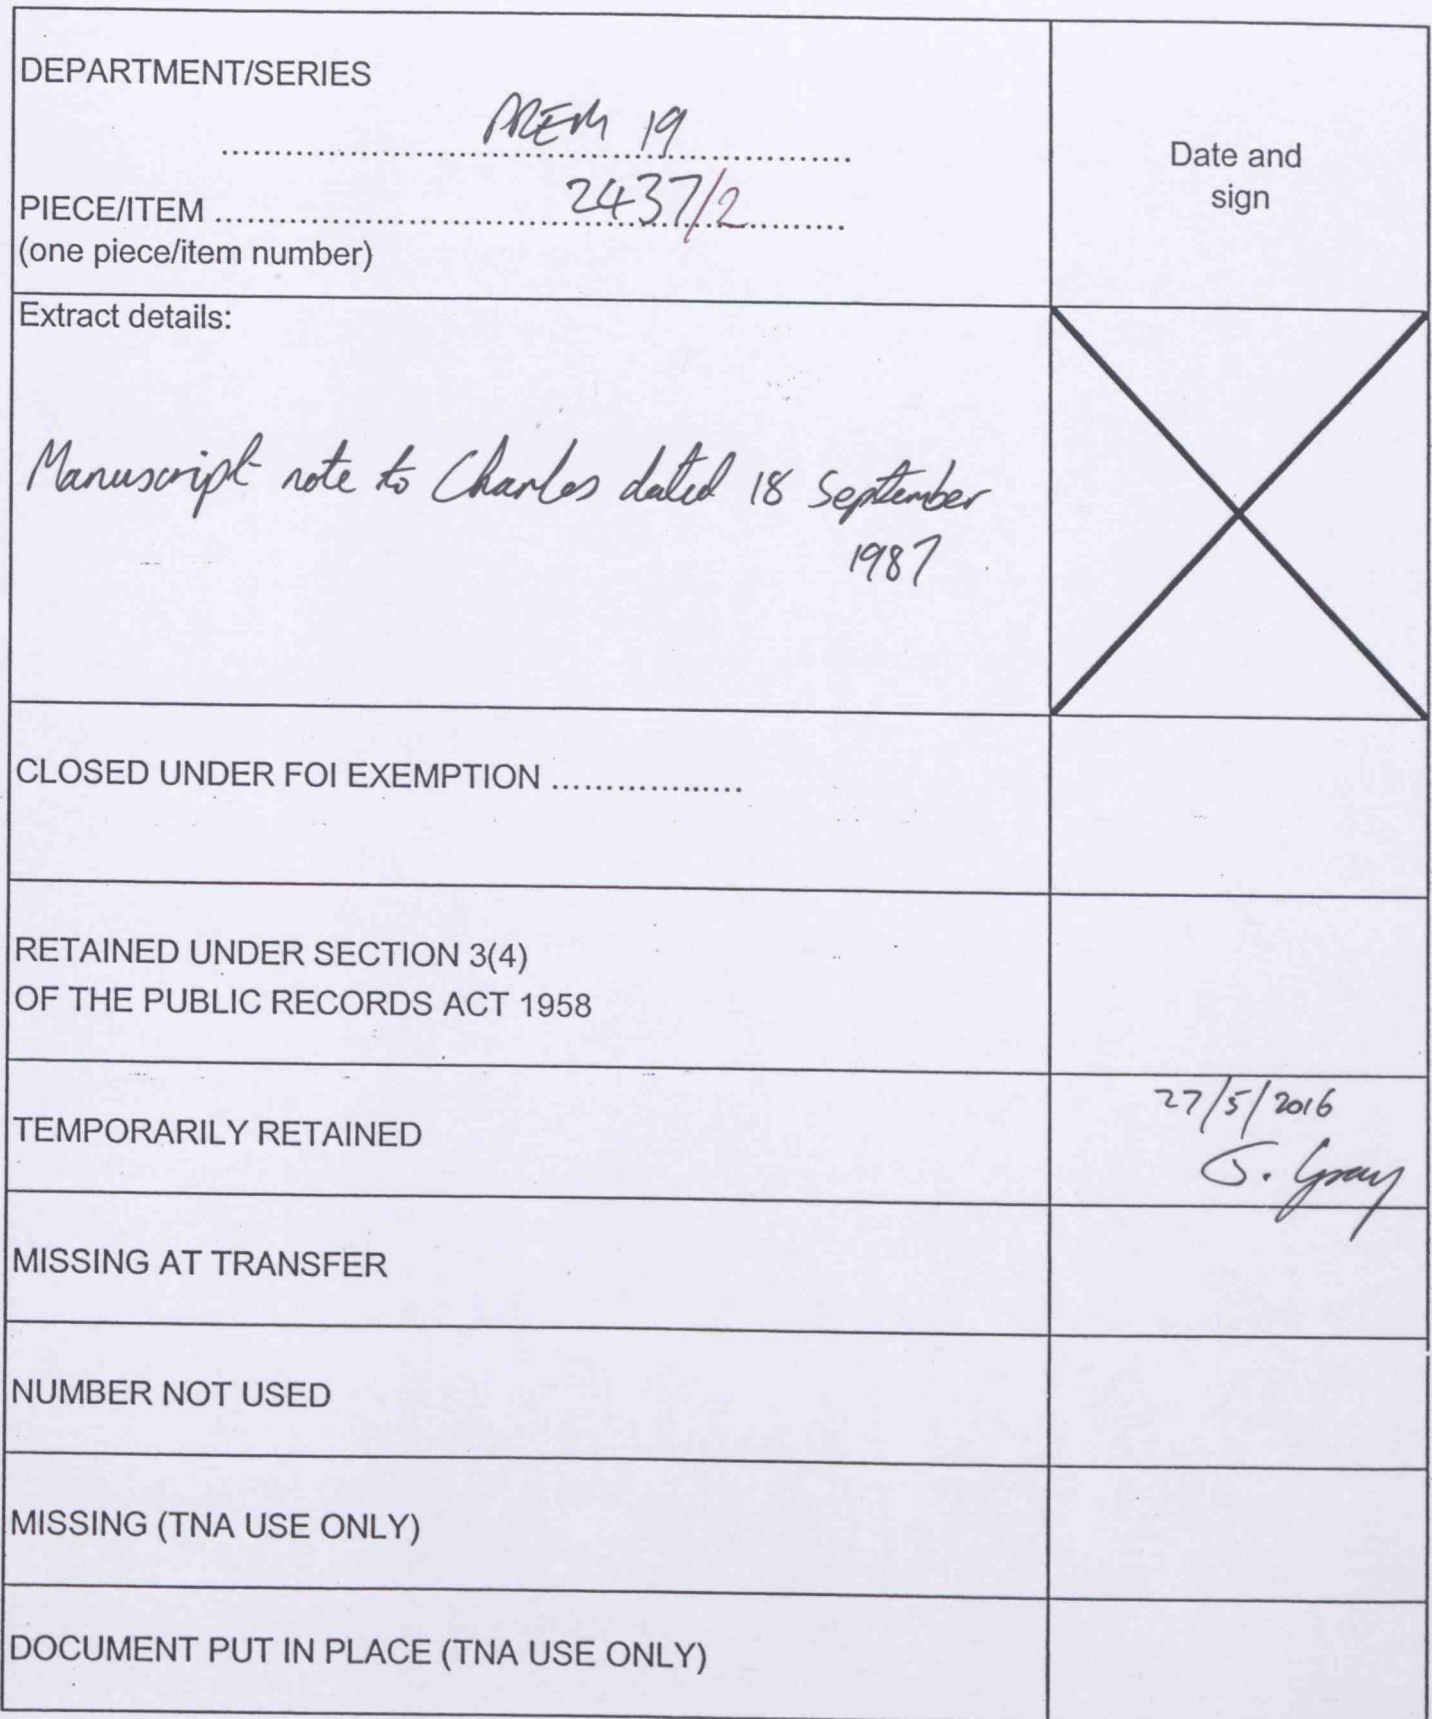 DEPARTMENT/SERIES
PREM 19
Date and
sign
PIECE/ITEM ........................ 2437/2
(one piece/item number)
Extract details:
Manuscript note to Charles dated 18 September
1987
CLOSED UNDER FOI EXEMPTION ..................
RETAINED UNDER SECTION 3(4)
OF THE PUBLIC RECORDS ACT 1958
TEMPORARILY RETAINED
27/5/2016
J. Gray
MISSING AT TRANSFER
NUMBER NOT USED
MISSING (TNA USE ONLY)
DOCUMENT PUT IN PLACE (TNA USE ONLY)